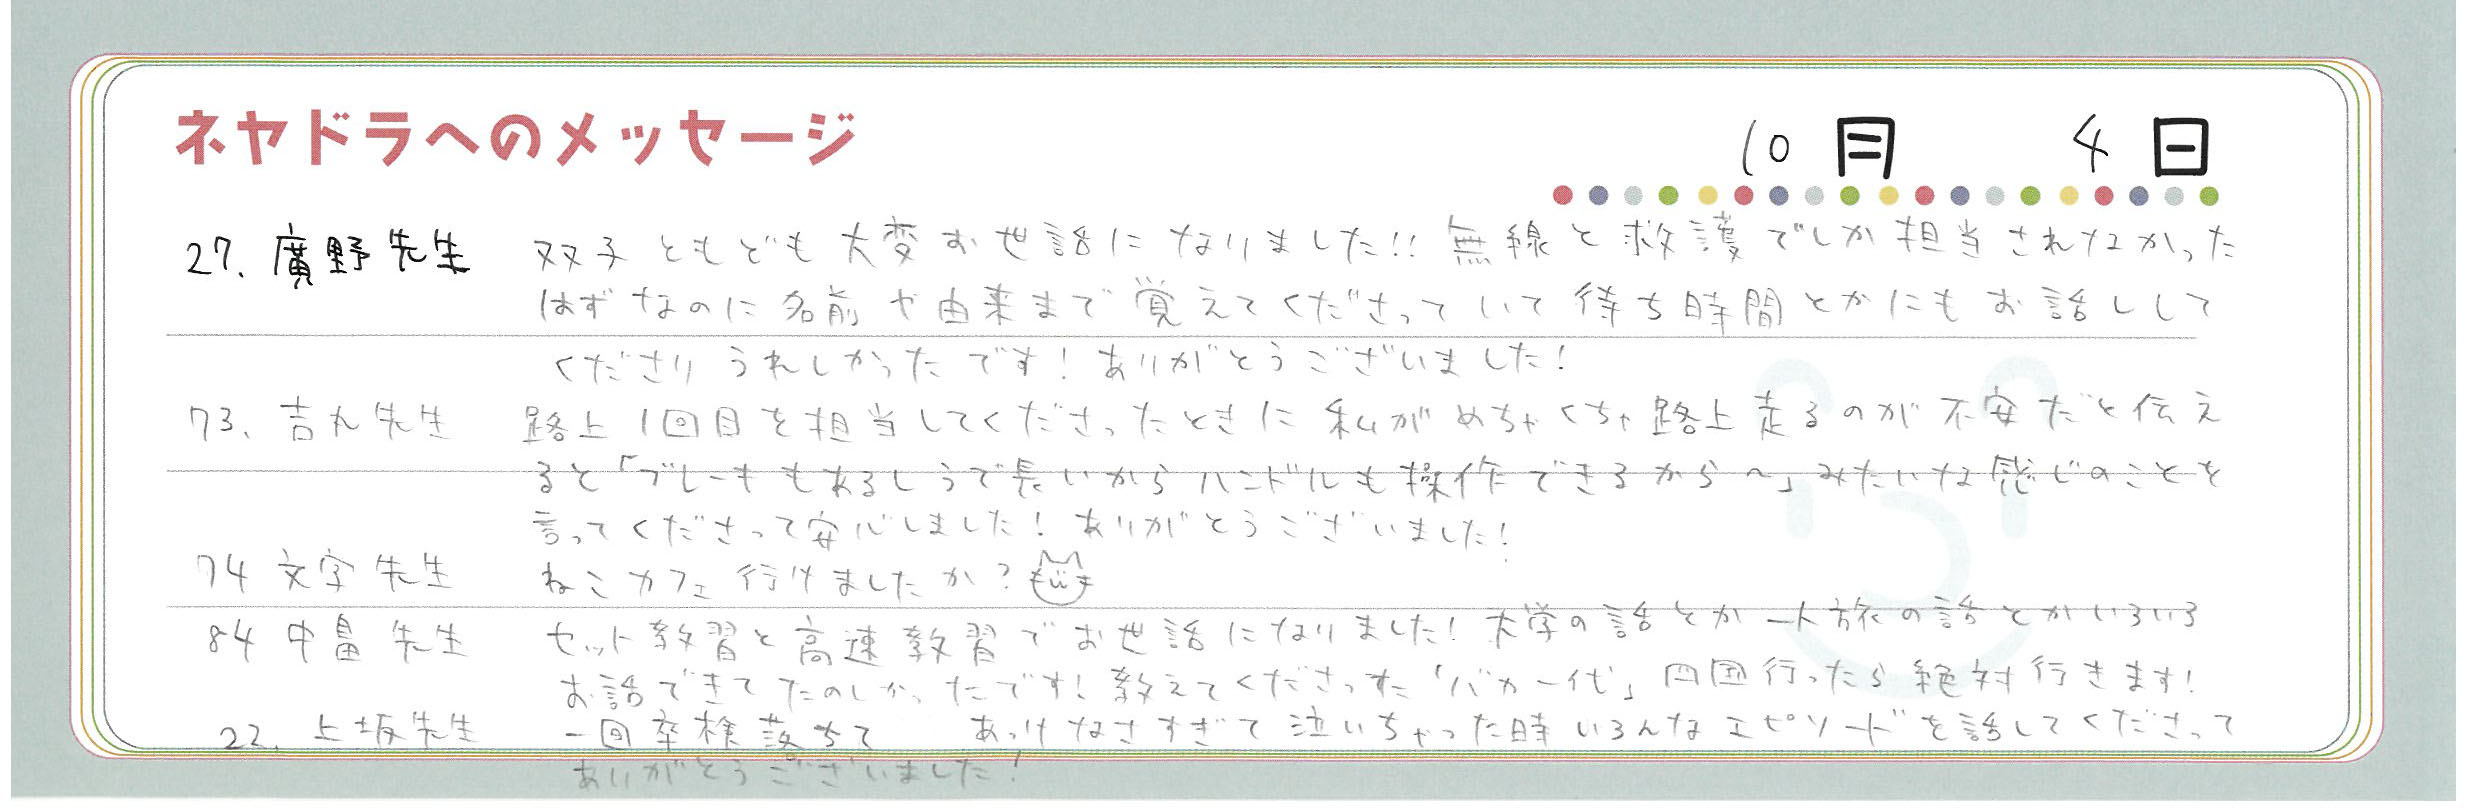 ネヤドラへのメッセージ
10月 4日
27. 廣野先生 双子ともども大変お世話になりました!! 無線と救護でしか担当されなかった
はずなのに名前や由来まで覚えてくださっていて待ち時間とかにもお話しして
くださりうれしかったです! ありがとうございました!
73. 吉丸先生 路上1回目を担当してくださったときに私がめちゃくちゃ路上走るのが不安だと伝え
ると「ブレーキもあるしうで長いからハンドルも操作できるから~」みたいな感じのことを
言ってくださって安心しました! ありがとうございました!
74 文字先生 ねこカフェ行けましたか?
84 中畠先生 セット教習と高速教習でお世話になりました! 大学の話とか一人旅の話とかいろいろ
お話できてたのしかったです! 教えてくださった「バカ一代」四国行ったら絶対行きます!
22. 上坂先生 一回卒検落ちて あっけなさすぎて泣いちゃった時いろんなエピソードを話してくださって
ありがとうございました!